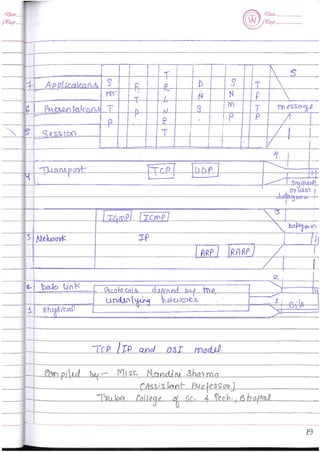 W
7 Applications
6 Presentations
5 Session
SMTP
FTP
TELNET
DNS
SNMP
TFTP
5
message
4 Transport
TCP UDP
4
Segment
or user
datagram
IGMP ICMP
3 Network
IP
ARP RARP
3
Datagram
2 Data Link
1 Physical
Protocols defined by the
underlying networks
2
1
Bits
TCP / IP and OSI model
Compiled by - Miss. Nandini Sharma
(Assistant Professor)
Truba College of Sc. & Tech., Bhopal
19